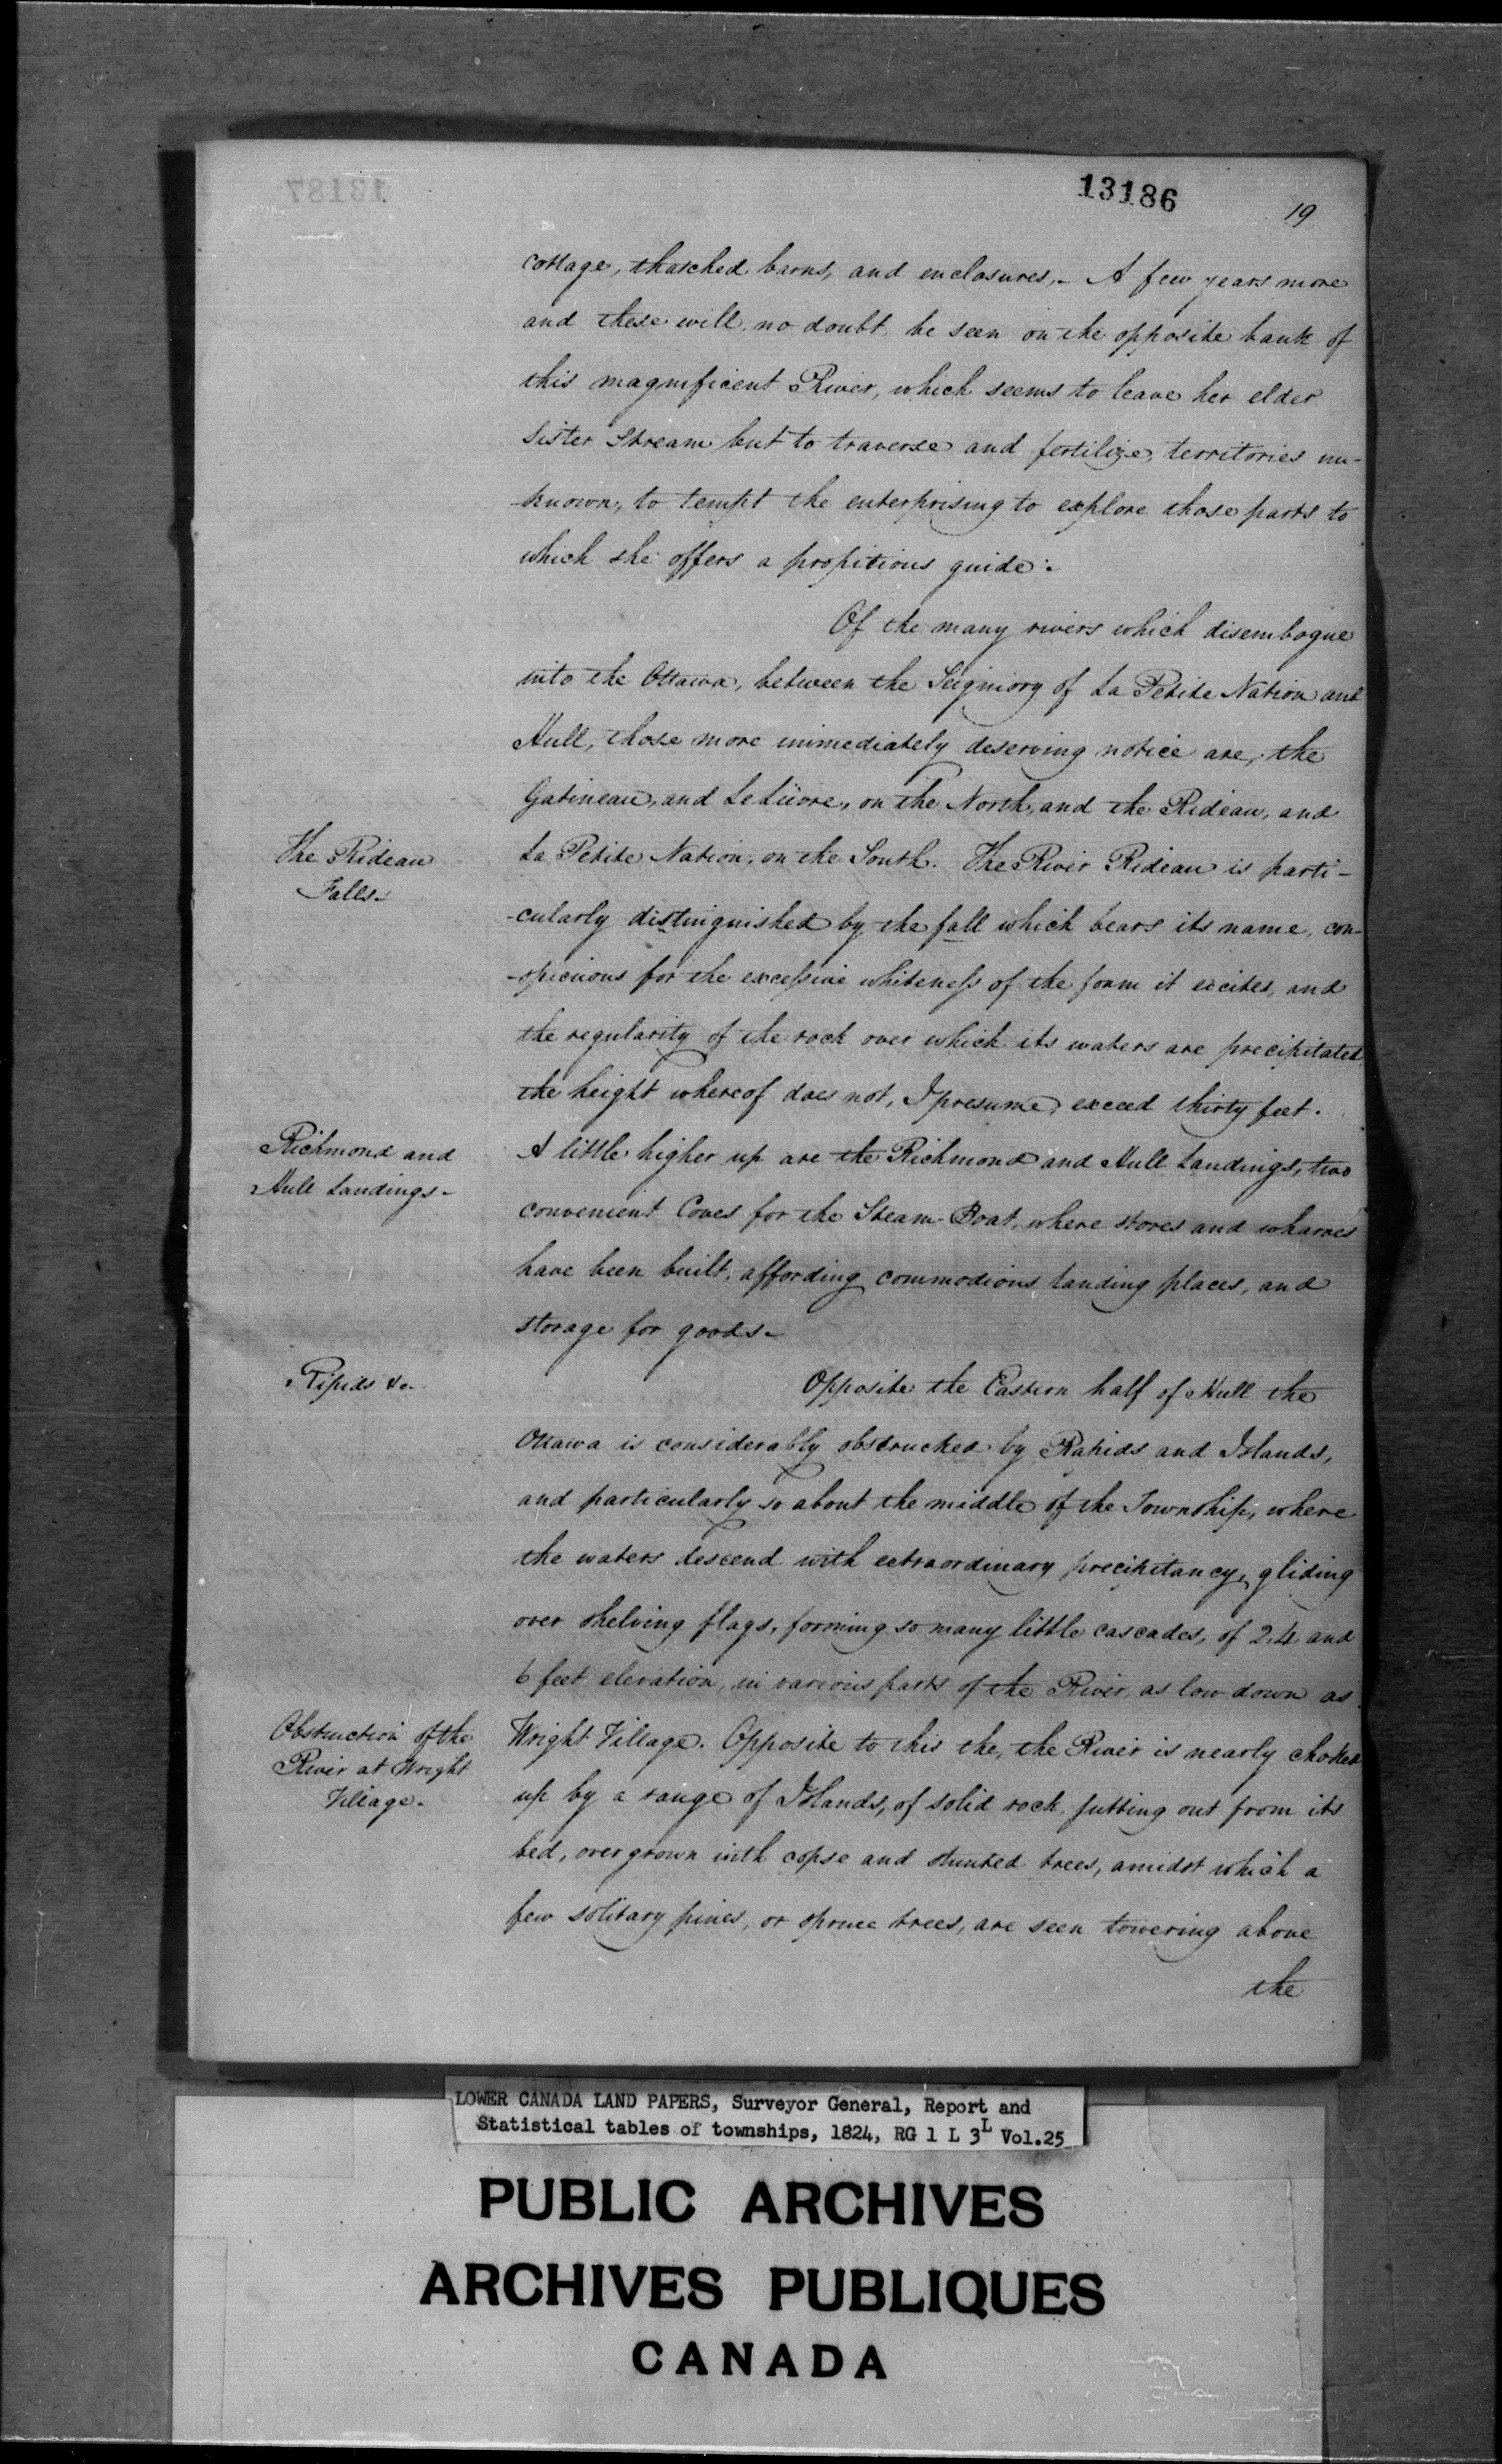 13187
13186
19
cottage, thatched barns, and enclosures,- A few years more
and these will, no doubt, be seen on the opposite bank of
this magnificent River, which seems to leave her elder
Sister Stream but to traverse and fertilize, territories un-
-known, to tempt the enterprising to explore those parts to
which she offers a propitious guide.-
Of the many rivers which disembogue
into the Ottawa, between the Seigniory of La Petite Nation and
Hull, those more immediately deserving notice are, the
Gatineau, and Le Lièvre, on the North, and the Rideau, and
The Rideau
Falls-
La Petite Nation, on the South. The River Rideau is parti-
-cularly distinguished by the fall which bears its name, con-
-spicuous for the excessive whiteness of the foam it excites, and
the regularity of the rock over which its waters are precipitated,
the height whereof does not, I presume, exceed thirty feet.
Richmond and
Hull Landings-
A little higher up are the Richmond and Hull Landings, two
convenient Coves for the Steam-Boat, where stores and wharves
have been built, affording commodious landing places, and
storage for goods-
Rapids &c-
Opposite the Eastern half of Hull the
Ottawa is considerably obstructed by Rapids and Islands,
and particularly so about the middle of the Township, where
the waters descend with extraordinary precipitancy, gliding
over shelving flags, forming so many little cascades, of 2, 4 and
6 feet elevation, in various parts of the River, as low down as
Obstruction of the
River at Wright
Village-
Wright Village. Opposite to this the, the River is nearly choked
up by a range of Islands, of solid rock jutting out from its
bed, overgrown with copse and stunted trees, amidst which a
few solitary pines, or spruce trees, are seen towering above
the
LOWER CANADA LAND PAPERS, Surveyor General, Report and
Statistical tables of townships, 1824, RG 1 L 3L Vol.25
PUBLIC ARCHIVES
ARCHIVES PUBLIQUES
CANADA